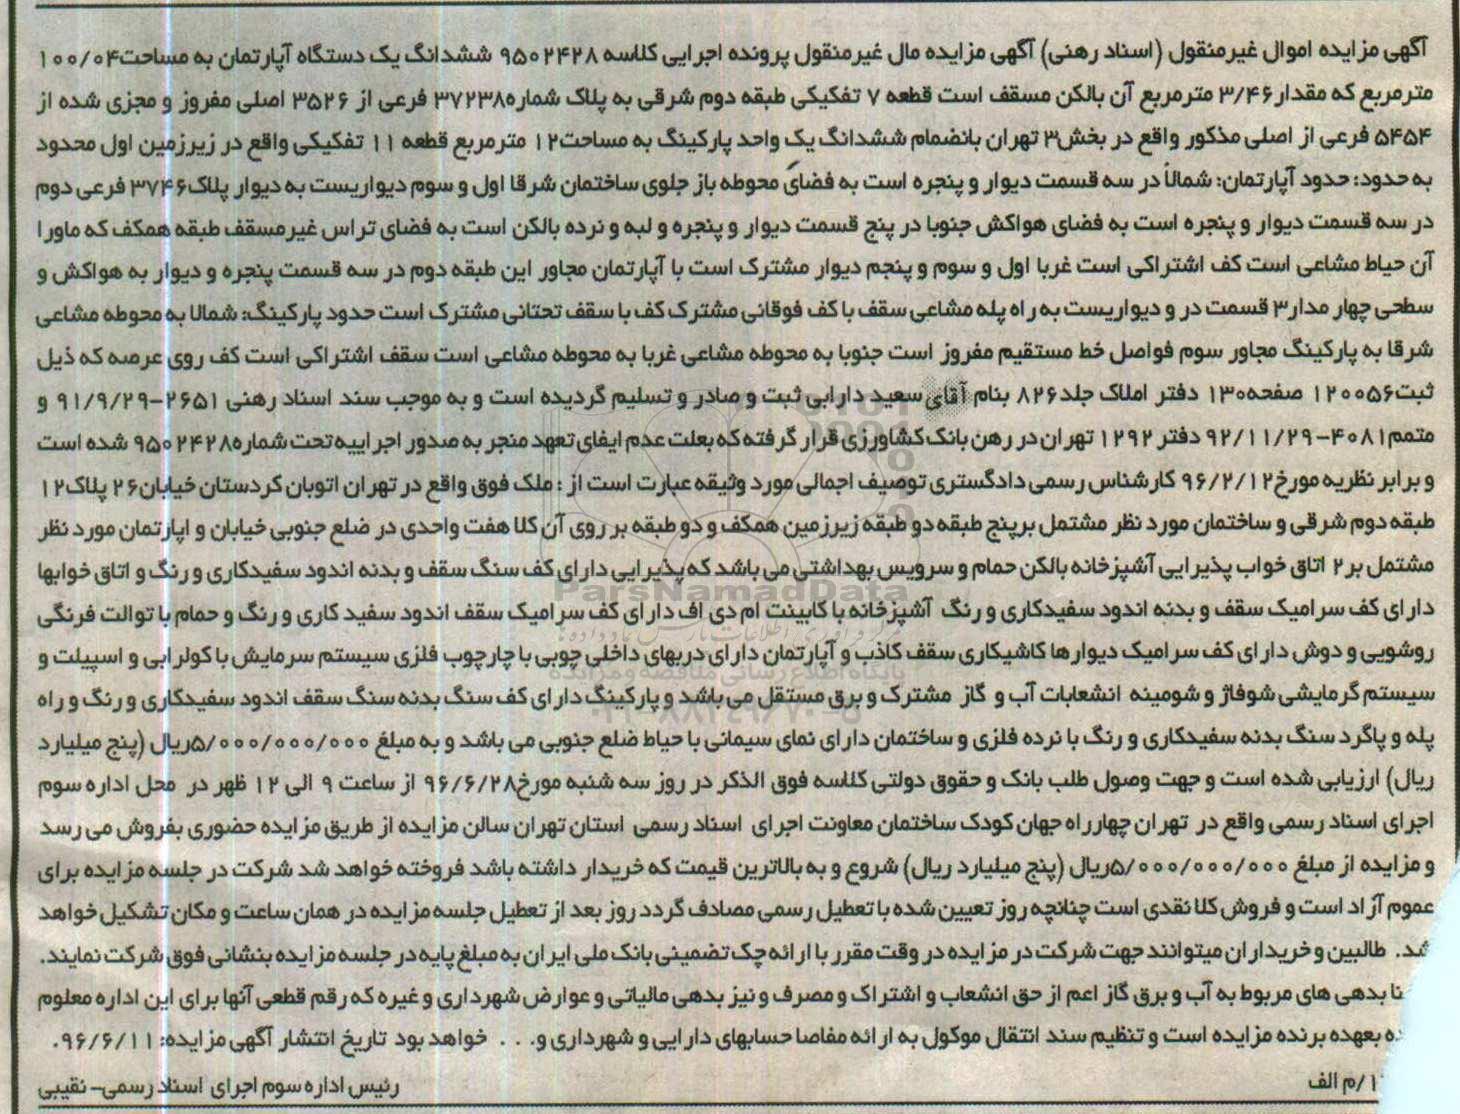 آگهی مزایده اموال غیرمنقول (اسناد رهنی) آگهی مزایده مال غیرمنقول پرونده اجرایی کلاسه ۹۵۰۲۴۲۸ ششدانگ یک دستگاه آپارتمان به مساحت۱۰۰/۰۴
مترمربع که مقدار۳/۴۶ مترمربع آن بالکن مسقف است قطعه ۷ تفکیکی طبقه دوم شرقی به پلاک شماره۳۷۲۳۸ فرعی از ۳۵۲۶ اصلی مفروز و مجزی شده از
۵۴۵۴ فرعی از اصلی مذکور واقع در بخش۳ تهران بانضمام ششدانگ یک واحد پارکینگ به مساحت۱۲ مترمربع قطعه ۱۱ تفکیکی واقع در زیرزمین اول محدود
به حدود: حدود آپارتمان: شمالاً در سه قسمت دیوار و پنجره است به فضای محوطه باز جلوی ساختمان شرقا اول و سوم دیواریست به دیوار پلاک۳۷۴۶ فرعی دوم
در سه قسمت دیوار و پنجره است به فضای هواکش جنوبا در پنج قسمت دیوار و پنجره و لبه و نرده بالکن است به فضای تراس غیرمسقف طبقه همکف که ماورا
آن حیاط مشاعی است کف اشتراکی است غربا اول و سوم و پنجم دیوار مشترک است با آپارتمان مجاور این طبقه دوم در سه قسمت پنجره و دیوار به هواکش و
سطحی چهار مدار۳ قسمت در و دیواریست به راه پله مشاعی سقف با کف فوقانی مشترک کف با سقف تحتانی مشترک است حدود پارکینگ: شمالا به محوطه مشاعی
شرقا به پارکینگ مجاور سوم فواصل خط مستقیم مفروز است جنوبا به محوطه مشاعی غربا به محوطه مشاعی است سقف اشتراکی است کف روی عرصه که ذیل
ثبت۱۲۰۰۵۶ صفحه۱۳۰ دفتر املاک جلد۸۲۶ بنام آقای سعید دارابی ثبت و صادر و تسلیم گردیده است و به موجب سند اسناد رهنی ۲۶۵۱-۹۱/۹/۲۹ و
متمم۴۰۸۱-۹۲/۱۱/۲۹ دفتر ۱۲۹۲ تهران در رهن بانک کشاورزی قرار گرفته که بعلت عدم ایفای تعهد منجر به صدور اجراییه تحت شماره۹۵۰۲۴۲۸ شده است
و برابر نظریه مورخ۹۶/۲/۱۲ کارشناس رسمی دادگستری توصیف اجمالی مورد وثیقه عبارت است از : ملک فوق واقع در تهران اتوبان کردستان خیابان۲۶ پلاک۱۲
طبقه دوم شرقی و ساختمان مورد نظر مشتمل برپنج طبقه دو طبقه زیرزمین همکف و دو طبقه بر روی آن کلا هفت واحدی در ضلع جنوبی خیابان و اپارتمان مورد نظر
مشتمل بر۲ اتاق خواب پذیرایی آشپزخانه بالکن حمام و سرویس بهداشتی می باشد که پذیرایی دارای کف سنگ سقف و بدنه اندود سفیدکاری و رنگ و اتاق خوابها
دارای کف سرامیک سقف و بدنه اندود سفیدکاری و رنگ آشپزخانه با کابینت ام دی اف دارای کف سرامیک سقف اندود سفید کاری و رنگ و حمام با توالت فرنگی
روشویی و دوش دارای کف سرامیک دیوارها کاشیکاری سقف کاذب و آپارتمان دارای دربهای داخلی چوبی با چارچوب فلزی سیستم سرمایش با کولرابی و اسپیلت و
سیستم گرمایشی شوفاژ و شومینه انشعابات آب و گاز مشترک و برق مستقل می باشد و پارکینگ دارای کف سنگ بدنه سنگ سقف اندود سفیدکاری و رنگ و راه
پله و پاگرد سنگ بدنه سفیدکاری و رنگ با نرده فلزی و ساختمان دارای نمای سیمانی با حیاط ضلع جنوبی می باشد و به مبلغ ۵/۰۰۰/۰۰۰/۰۰۰ریال (پنج میلیارد
ریال) ارزیابی شده است و جهت وصول طلب بانک و حقوق دولتی کلاسه فوق الذکر در روز سه شنبه مورخ۹۶/۶/۲۸ از ساعت ۹ الی ۱۲ ظهر در محل اداره سوم
اجرای اسناد رسمی واقع در تهران چهارراه جهان کودک ساختمان معاونت اجرای اسناد رسمی استان تهران سالن مزایده از طریق مزایده حضوری بفروش می رسد
و مزایده از مبلغ ۵/۰۰۰/۰۰۰/۰۰۰ریال (پنج میلیارد ریال) شروع و به بالاترین قیمت که خریدار داشته باشد فروخته خواهد شد شرکت در جلسه مزایده برای
عموم آزاد است و فروش کلا نقدی است چنانچه روز تعیین شده با تعطیل رسمی مصادف گردد روز بعد از تعطیل جلسه مزایده در همان ساعت و مکان تشکیل خواهد
شد. طالبین و خریداران میتوانند جهت شرکت در مزایده در وقت مقرر با ارائه چک تضمینی بانک ملی ایران به مبلغ پایه در جلسه مزایده بنشانی فوق شرکت نمایند.
بدهی های مربوط به آب و برق گاز اعم از حق انشعاب و اشتراک و مصرف و نیز بدهی مالیاتی و عوارض شهرداری و غیره که رقم قطعی آنها برای این اداره معلوم
بعهده برنده مزایده است و تنظیم سند انتقال موکول به ارائه مفاصا حسابهای دارایی و شهرداری و. . . خواهد بود تاریخ انتشار آگهی مزایده: ۹۶/۶/۱۱.
/م الف
رئیس اداره سوم اجرای اسناد رسمی- نقیبی
ParsNamadData
پایگاه اطلاع رسانی مناقصه و مزایده